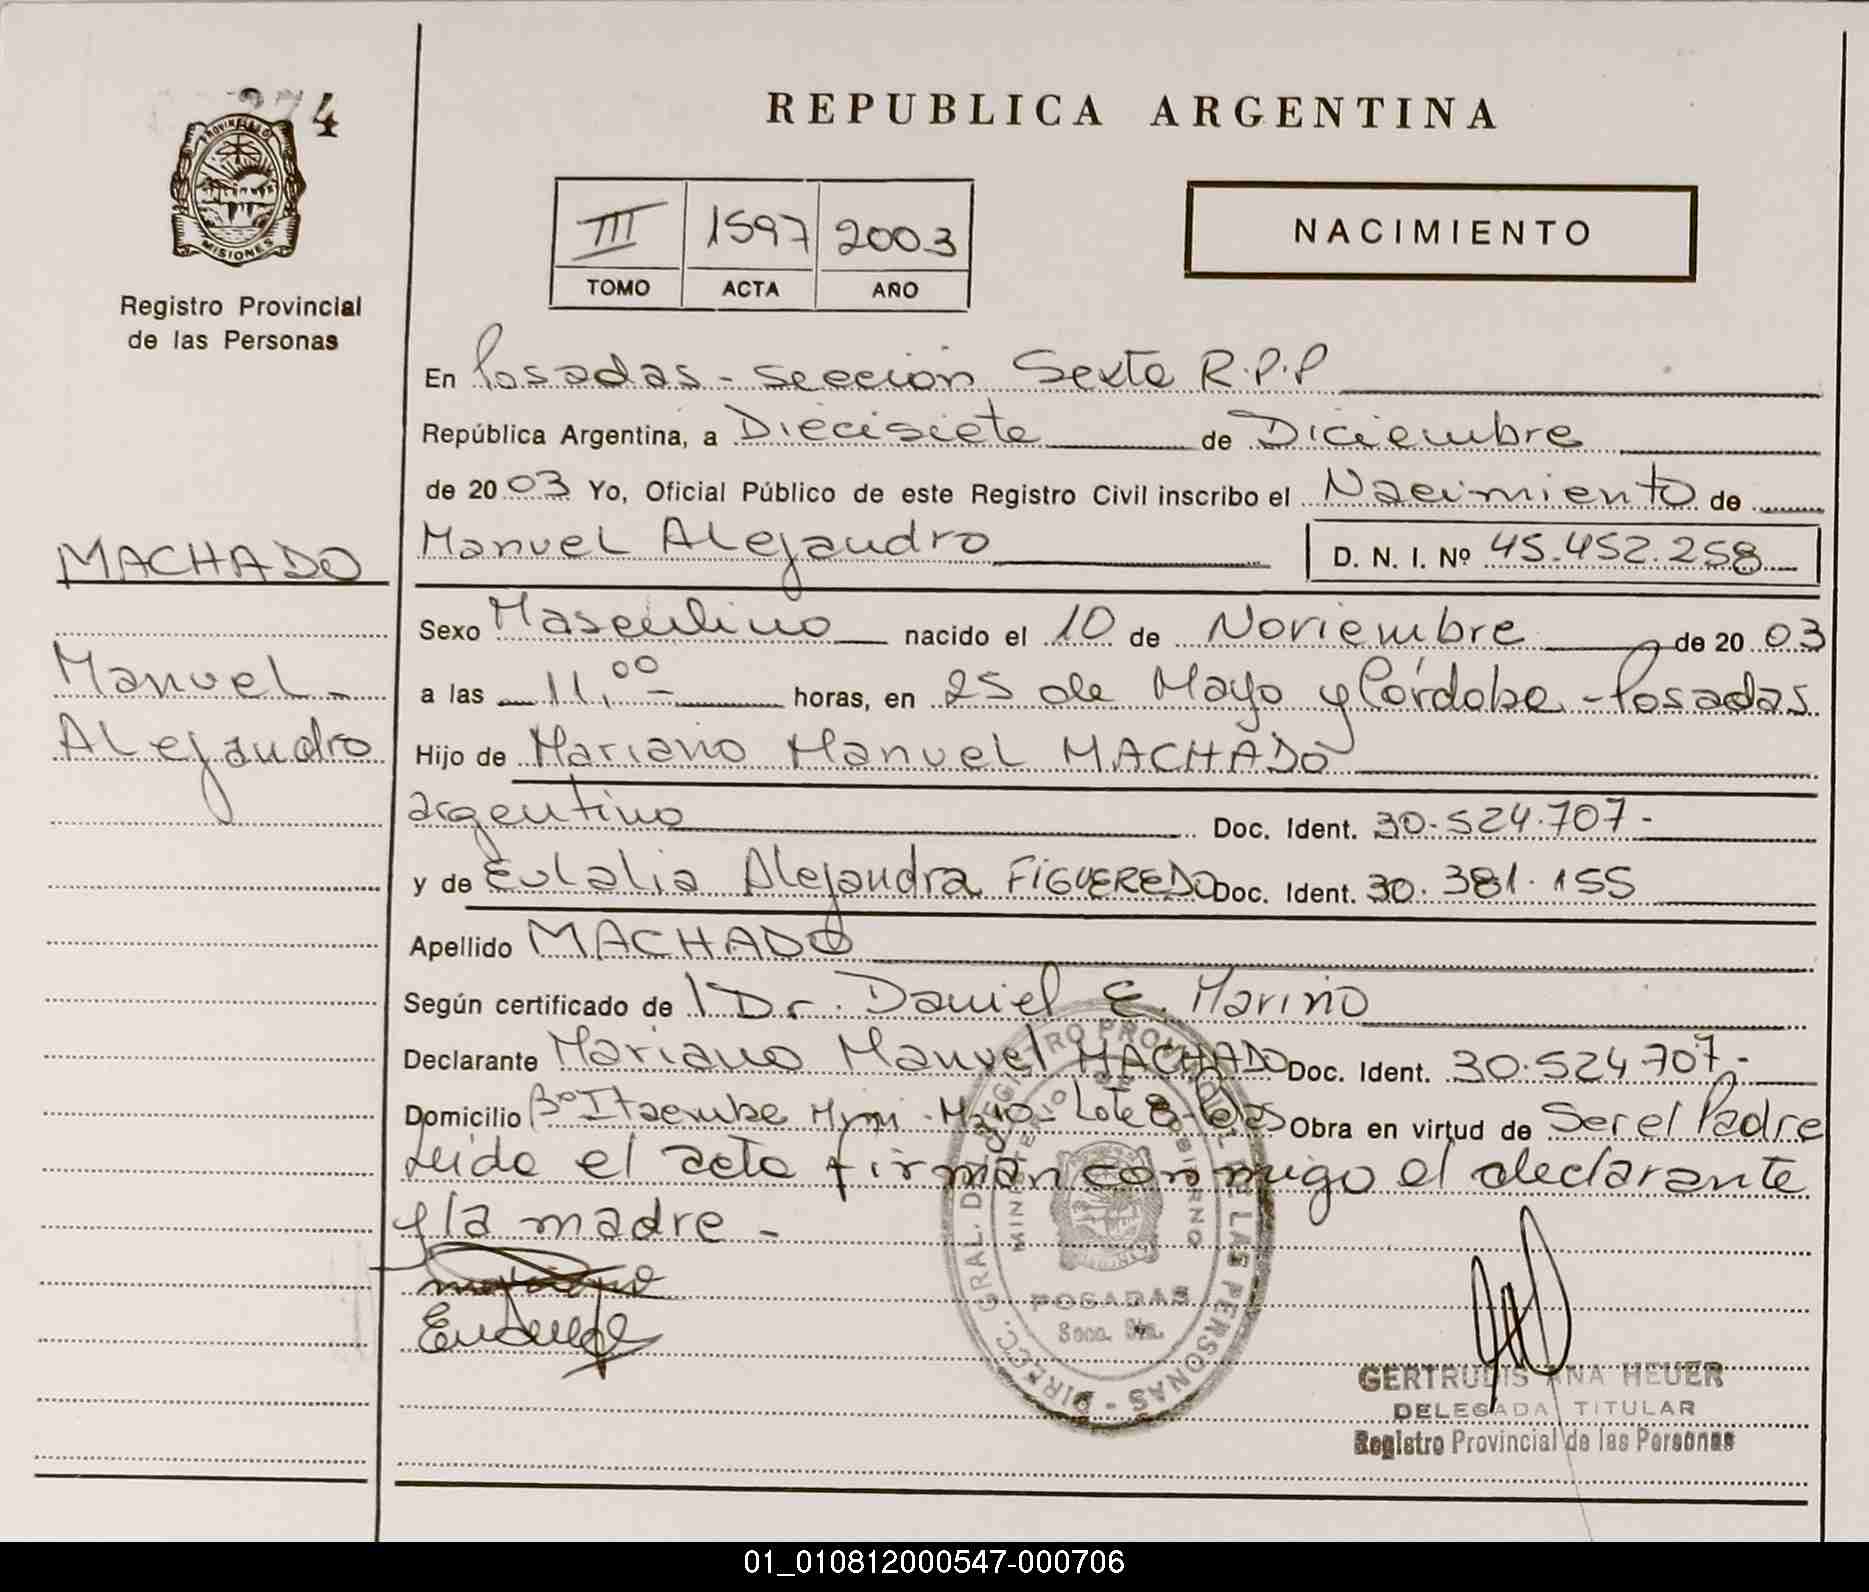 274
PROVINCIA DE
MISIONES
Registro Provincial
de las Personas
MACHADO
Manuel -
Alejandro
REPUBLICA ARGENTINA
III 1597 2003
TOMO ACTA AÑO
NACIMIENTO
En Posadas - sección Sexta R.P.P
República Argentina, a Diecisiete de Diciembre
de 20 03 Yo, Oficial Público de este Registro Civil inscribo el Nacimiento de
Manuel Alejandro D. N. I. Nº 45.452.258
Sexo Masculino nacido el 10 de Noviembre de 20 03
a las 11,00 horas, en 25 de Mayo y Córdoba - Posadas
Hijo de Mariano Manuel MACHADO
argentino Doc. Ident. 30.524.707-
y de Eulalia Alejandra FIGUEREDO Doc. Ident. 30.381.155
Apellido MACHADO
Según certificado de l Dr. Daniel E. Marino
Declarante Mariano Manuel MACHADO Doc. Ident. 30.524.707-
Domicilio Bº Itaembe Mini - Lote 8 - Obra en virtud de Ser el Padre
Leida el acta firman conmigo el declarante
y la madre -
DIRECC. GRAL. DEL REGISTRO PROVINCIAL DE LAS PERSONAS -
MINISTERIO DE GOBIERNO
POSADAS
Secc. 6ta.
GERTRUDIS ANA HEUER
DELEGADA TITULAR
Registro Provincial de las Personas
01_010812000547-000706